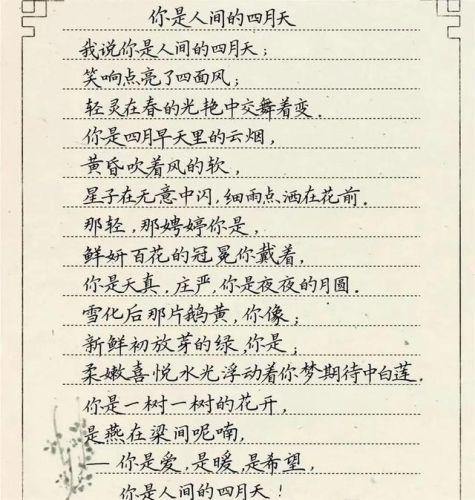 你是人间的四月天
我说你是人间的四月天；
笑响点亮了四面风；
轻灵在春的光艳中交舞着变.
你是四月早天里的云烟,
黄昏吹着风的软,
星子在无意中闪,细雨点洒在花前.
那轻,那娉婷你是,
鲜妍百花的冠冕你戴着,
你是天真,庄严,你是夜夜的月圆.
雪化后那片鹅黄,你像；
新鲜初放芽的绿,你是；
柔嫩喜悦水光浮动着你梦期待中白莲.
你是一树一树的花开,
是燕在梁间呢喃,
— 你是爱,是暖,是希望,
你是人间的四月天！